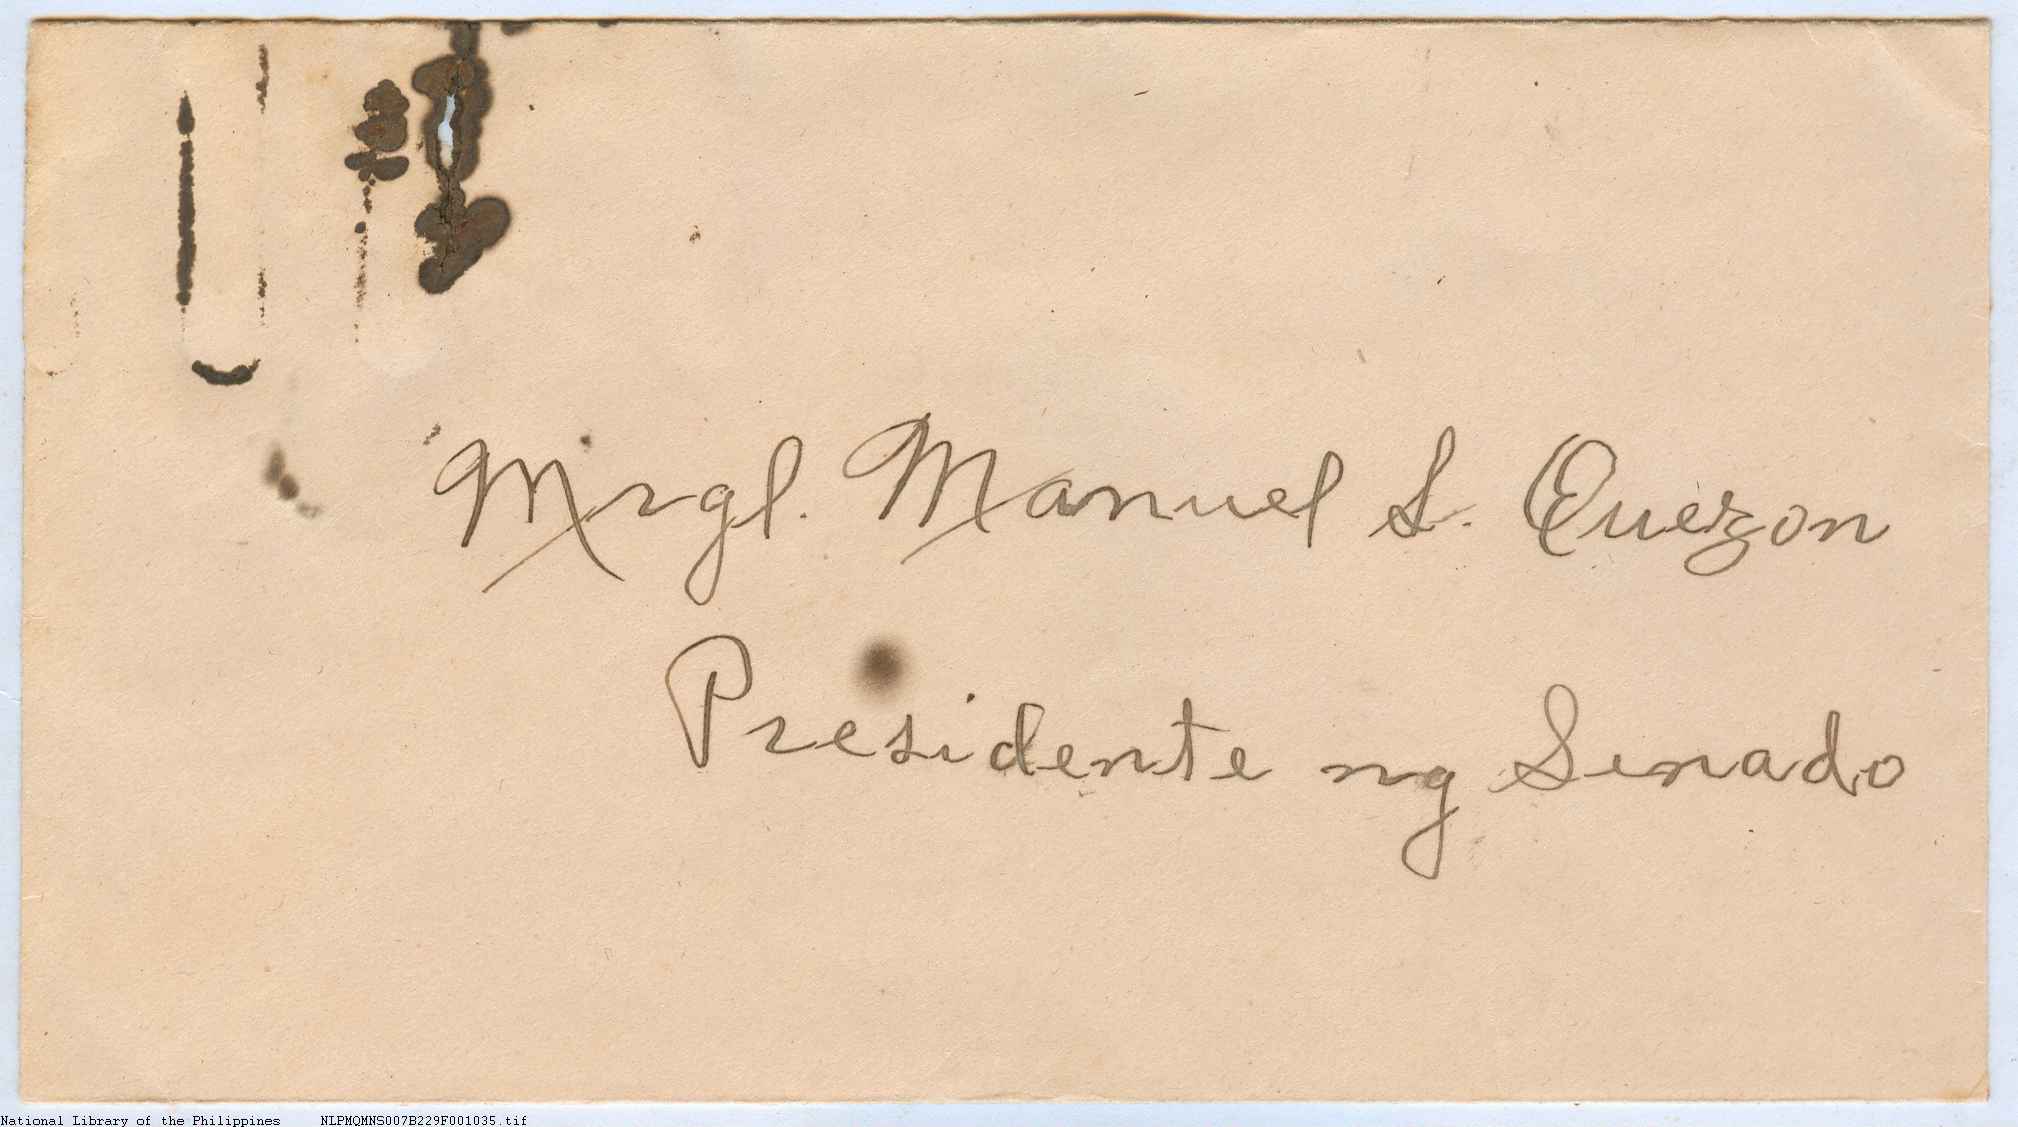 Mrgl. Manuel L. Quezon
Presidente ng Senado
National Library of the Philippines NLPMQMNS007B229F001035.tif